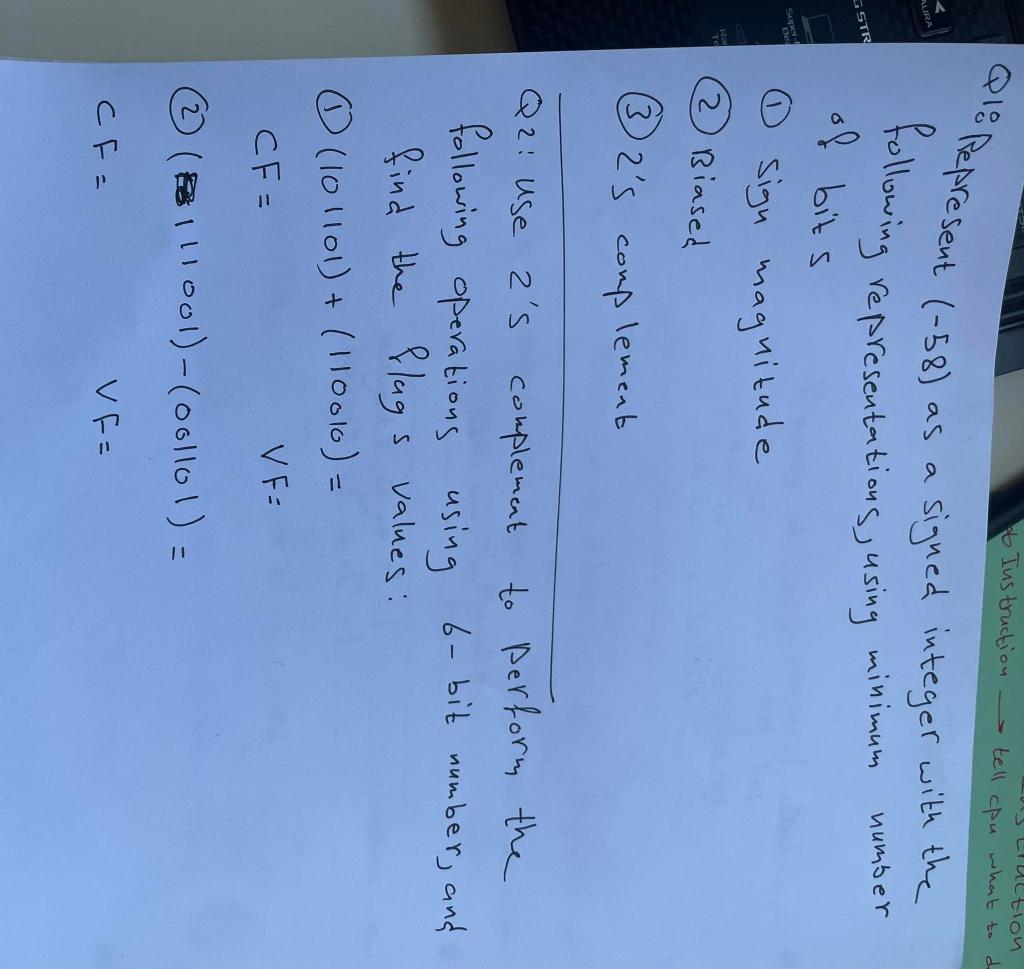 Q1: Represent (-58) as a signed integer with the
following representations, using minimum number
of bits
① Sign magnitude
② Biased
③ 2's complement
Q2: Use 2's complement to perform the
following operations using 6-bit number, and
find the flags values:
① (101101) + (110010) =
CF = VF =
② (111001) - (001101) =
CF = VF =
Instruction → tell cpu what to d
AURA
G STR